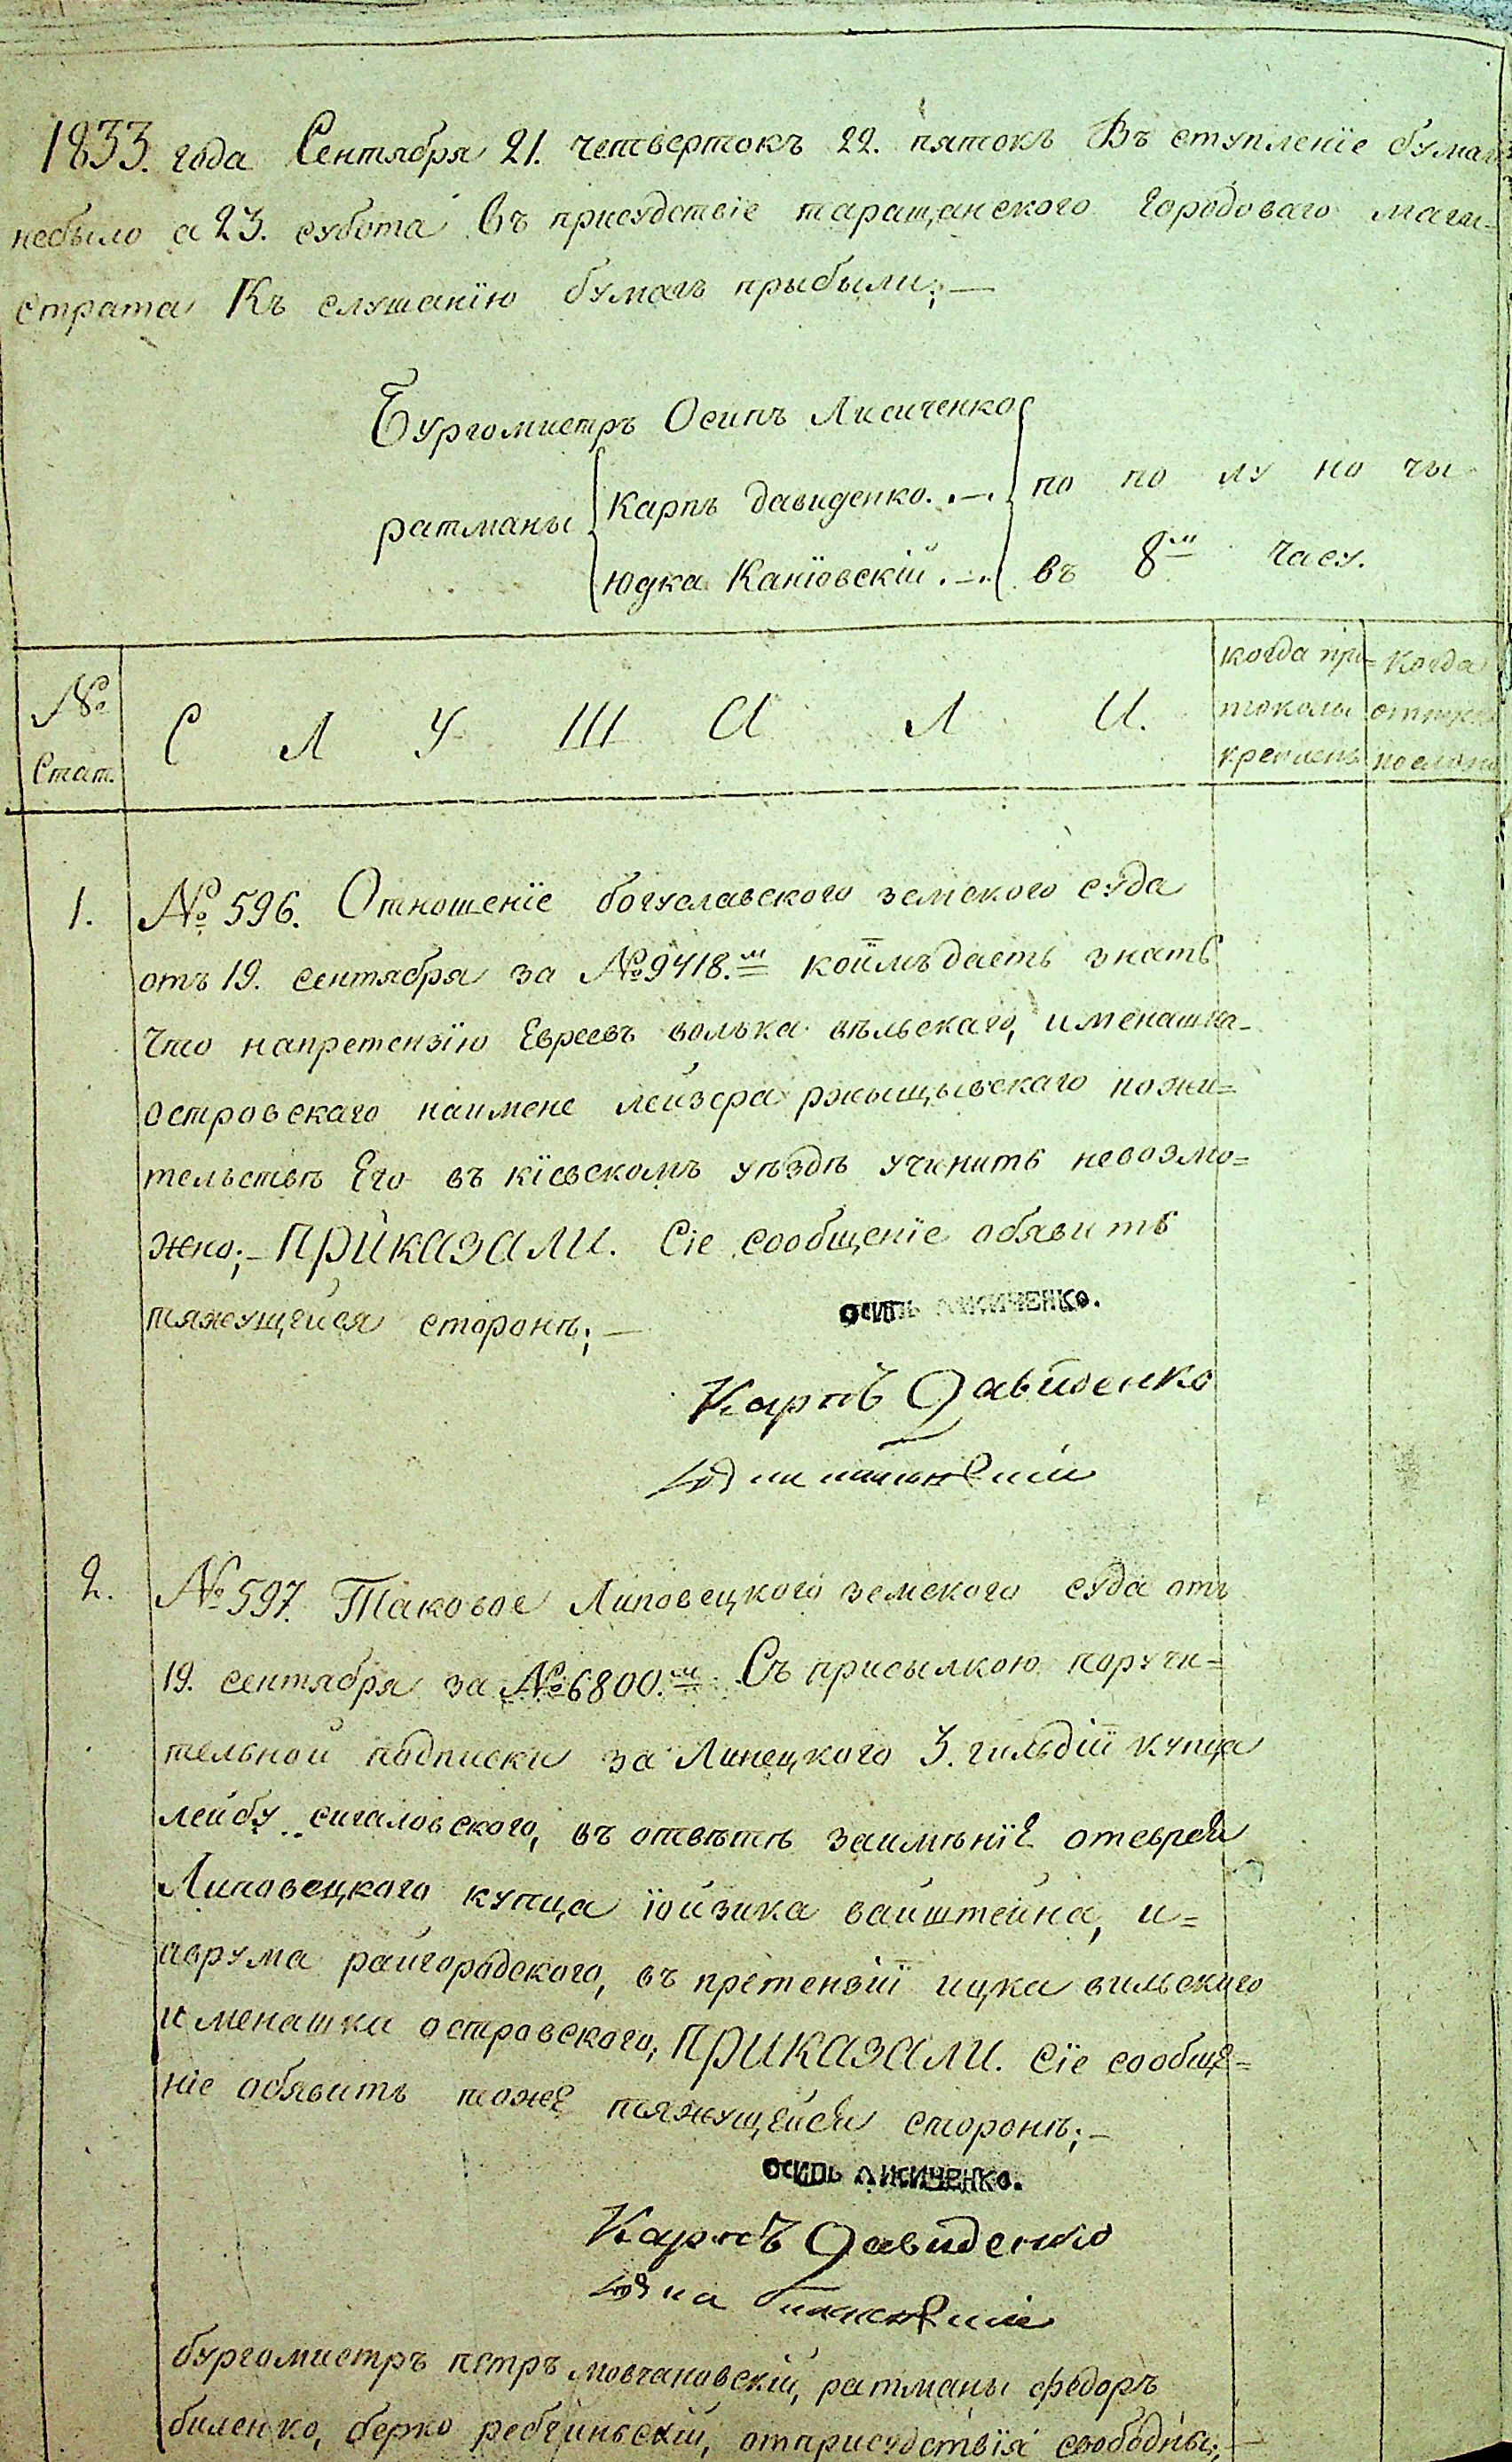 1833. года Сентября 21. четвертокъ 22. пятокъ Въ ступленїе бумагъ
небыло а 23. субота въ присудствїе таращанского городоваго маги-
страта Къ слушанїю бумагъ прыбыли; —
Бургомистръ Осипъ Лисиченко
ратманы
Карпъ Давиденко. . — .
Юдка Канїовскїй . — .
по по лу но чы
въ 8м часу.
№ Стат.
С Л У Ш А Л И.
когда про=
токолы
креплены
Когда
отпуски
1. № 596. Отношенїе богуславского земского суда
отъ 19. сентября за № 9418.м коїмъ даетъ знать
Что напретензїю Евреевъ волька вѣльскаго, именашка-
островскаго наимене лейзера ржыщывскаго пожи=
тельствѣ Его въ кїевскомъ уѣздѣ учинить невозмо=
жно; — ПРИКАЗАЛИ. Сїе сообщенїе обявить
тяжущейся сторонѣ; —
ОСИПЬ ЛИСИЧЕНКО.
Карпъ Давиденко
2. № 597. Таковое Липовецкого земского суда отъ
19. сентября за № 6800.м Съ присылкою поручи=
тельной подписки за Линецкого 3. гильдїй купца
лейбу сигаловского, въ отвѣтѣ заимѣнїе отеврей
Липовецкого купца їойзика вайштейна, и=
аврума райгородского, въ претензїй ицка вильского
и менашки островского; ПРИКАЗАЛИ. Сїе сообще=
нїе обявить тоже тяжущейся сторонѣ; —
ОСИПЬ ЛИСИЧЕНКО.
Карпъ Давиденко
бургомистръ петръ мовчановскїй, ратманы федоръ
биленко, берко ребчиньскїй, отприсудствїя свободны; —